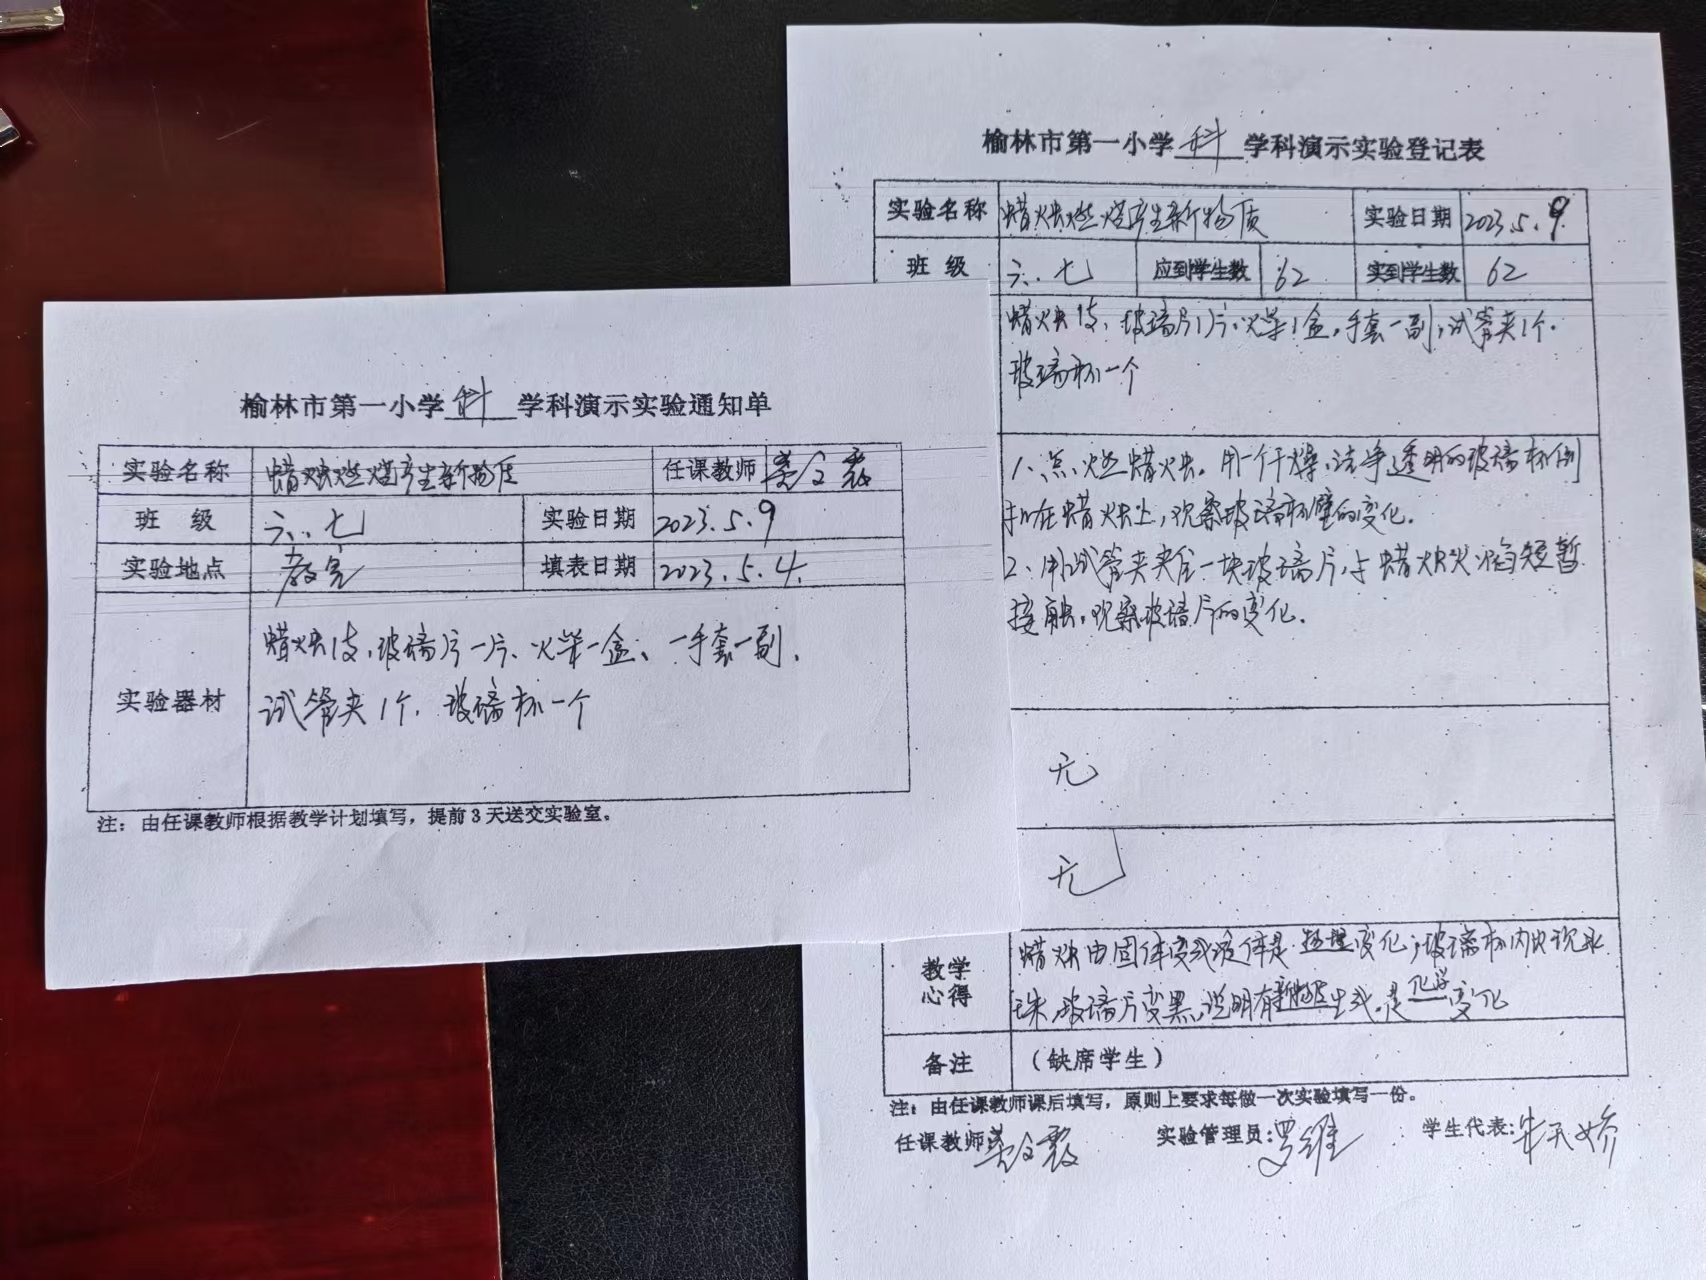 榆林市第一小学 科 学科演示实验通知单
实验名称 蜡烛燃烧产生新物质 任课教师
班 级 六.七 实验日期 2023.5.9
实验地点 教室 填表日期 2023.5.4.
实验器材
蜡烛1支,玻璃片一片、火柴一盒、一手套一副,
试管夹1个, 玻璃杯一个
注：由任课教师根据教学计划填写，提前3天送交实验室。
榆林市第一小学 科 学科演示实验登记表
实验名称 蜡烛燃烧产生新物质 实验日期 2023.5.9
班 级 六.七 应到学生数 62 实到学生数 62
蜡烛1支,玻璃片1片,火柴1盒,手套一副,试管夹1个.
玻璃杯一个
1、点燃蜡烛。用一个干燥、洁净透明的玻璃杯倒
扣在蜡烛上,观察玻璃杯壁的变化.
2、用试管夹夹住一块玻璃片,与蜡烛火焰短暂
接触,观察玻璃片的变化.
无
无
教学心得
蜡烛由固体变成液体是物理变化,玻璃杯内出现水
珠,玻璃片变黑,说明有新物质生成,是化学变化
备注 （缺席学生）
注：由任课教师课后填写，原则上要求每做一次实验填写一份。
任课教师 实验管理员:罗维 学生代表:朱天娇